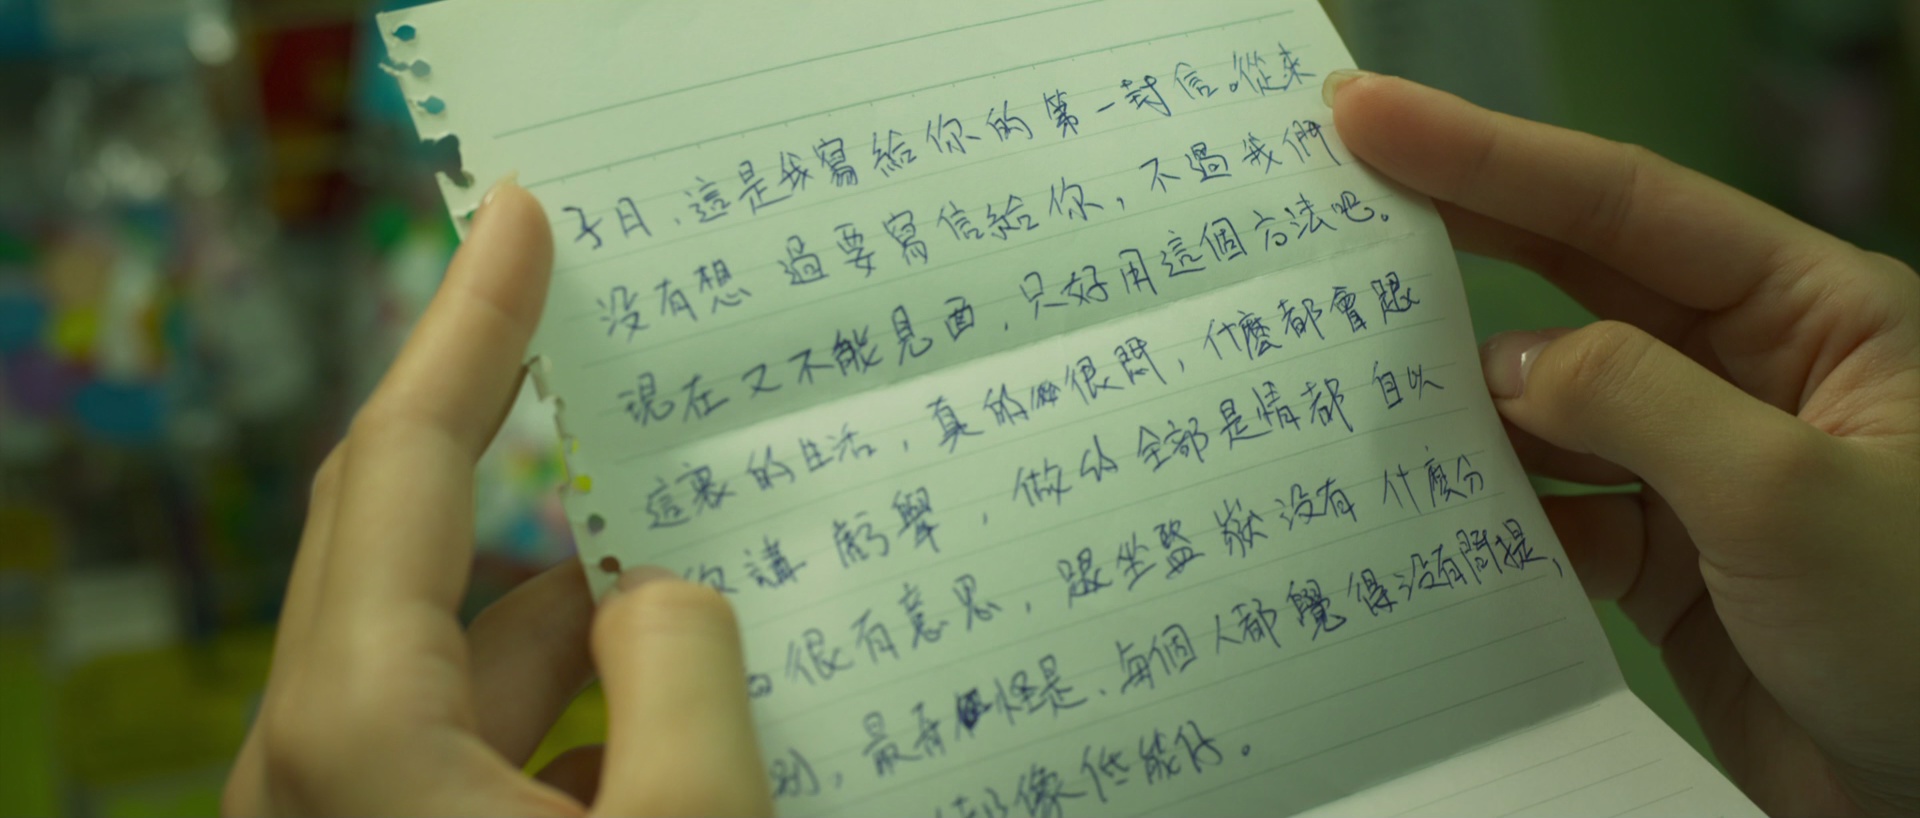 子日、這是我寫給你的第一封信。從來
沒有想過要寫信給你，不過我們
現在又不能見面，只好用這個方法吧。
這裏的生活，真的很悶，什麼都會跟
你講
，做的全部是情都自以
很有意思，跟坐監 沒有什麼分
別，最奇怪是、每個人都覺得沒有問提，
像低能仔。